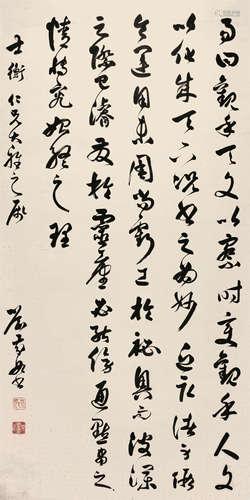 易曰觀乎天文以察時變觀乎人文
以化成天下況書之為妙近取諸身假
令運用未周尚虧工於秘奧而波瀾
之際已濬發於靈臺必能傍通點畫之
情博究始終之理
士衡仁兄大雅之屬